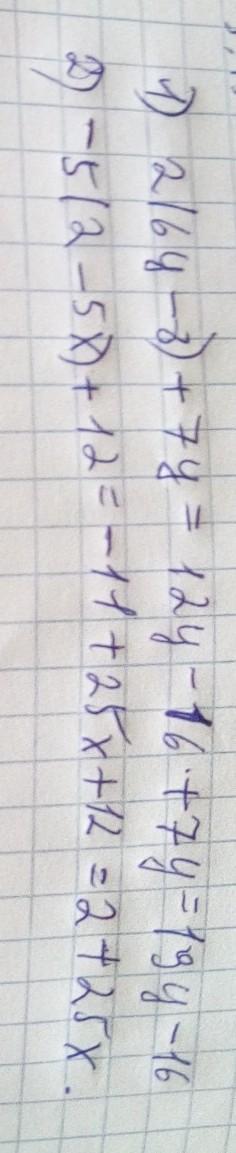 1) 2(6y - 8) + 7y = 12y - 16 + 7y = 19y - 16
2) -5(2 - 5x) + 12 = -11 + 25x + 12 = 2 + 25x.